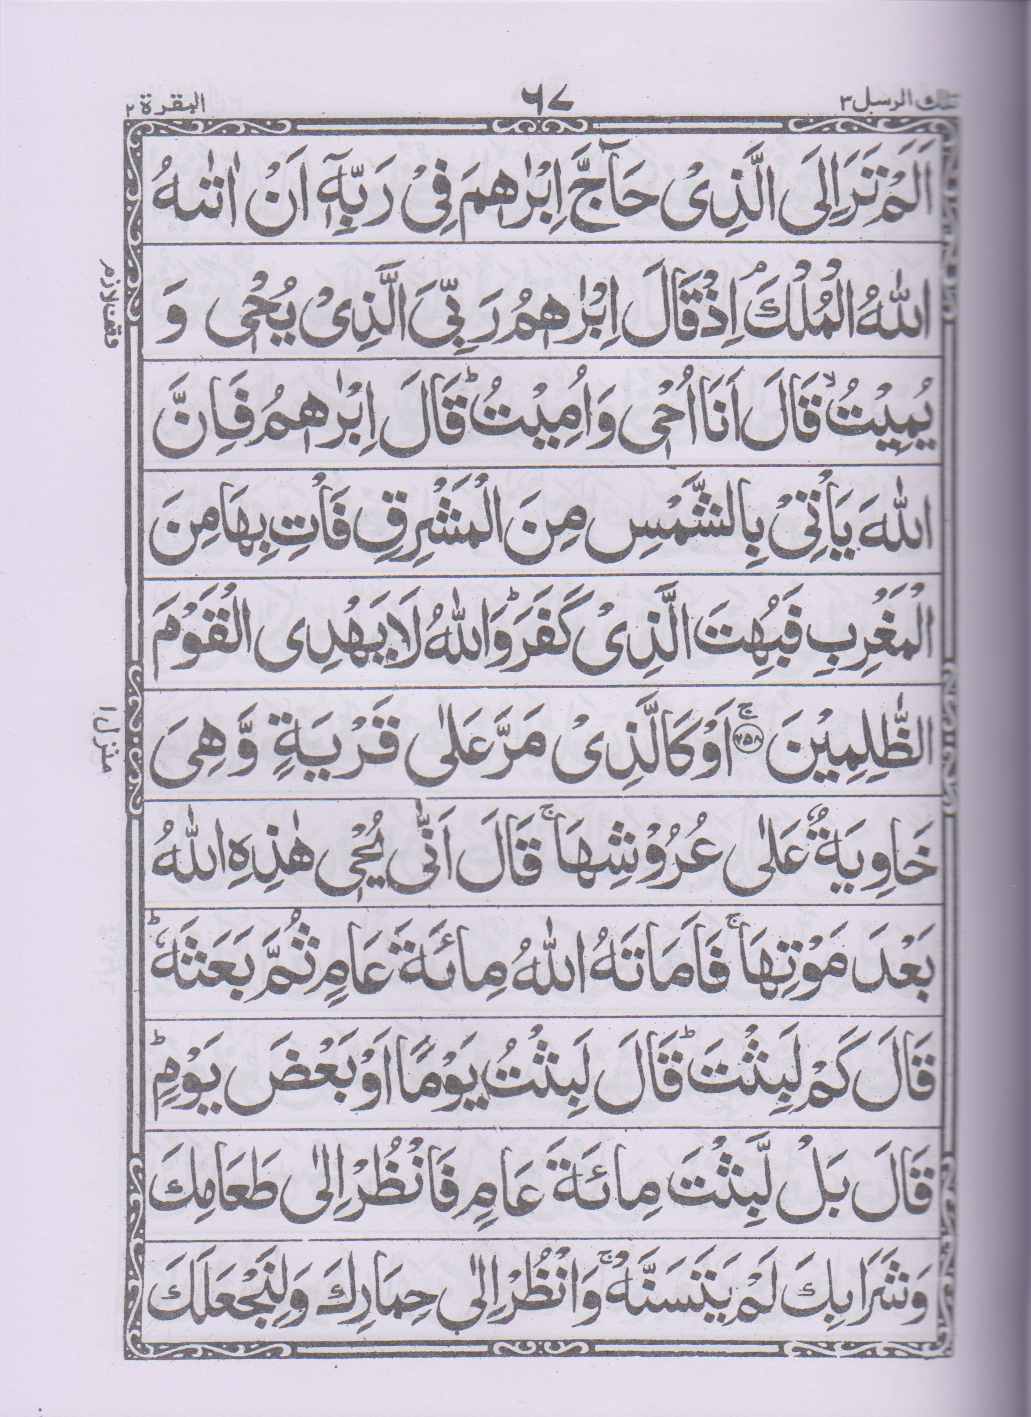 تلك الرسل ٣ ٦٧ البقرة ٢
اَلَمْ تَرَ اِلَى الَّذِىْ حَآجَّ اِبْرٰهٖمَ فِىْ رَبِّهٖۤ اَنْ اٰتٰىهُ
اللّٰهُ الْمُلْكَ ۘ اِذْ قَالَ اِبْرٰهٖمُ رَبِّىَ الَّذِىْ يُحْىٖ وَ
يُمِيْتُ ۙ قَالَ اَنَا اُحْىٖ وَاُمِيْتُ ؕ قَالَ اِبْرٰهٖمُ فَاِنَّ
اللّٰهَ يَاْتِىْ بِالشَّمْسِ مِنَ الْمَشْرِقِ فَاْتِ بِهَا مِنَ
الْمَغْرِبِ فَبُهِتَ الَّذِىْ كَفَرَ ؕ وَاللّٰهُ لَا يَهْدِى الْقَوْمَ
الظّٰلِمِيْنَ ۚ ﴿٢٥٨﴾ اَوْ كَالَّذِىْ مَرَّ عَلٰى قَرْيَةٍ وَّهِىَ
خَاوِيَةٌ عَلٰى عُرُوْشِهَا ۚ قَالَ اَنّٰى يُحْىٖ هٰذِهِ اللّٰهُ
بَعْدَ مَوْتِهَا ۚ فَاَمَاتَهُ اللّٰهُ مِائَةَ عَامٍ ثُمَّ بَعَثَهٗ ؕ
قَالَ كَمْ لَبِثْتَ ؕ قَالَ لَبِثْتُ يَوْمًا اَوْ بَعْضَ يَوْمٍ ؕ
قَالَ بَلْ لَّبِثْتَ مِائَةَ عَامٍ فَانْظُرْ اِلٰى طَعَامِكَ
وَشَرَابِكَ لَمْ يَتَسَنَّهْ ۚ وَانْظُرْ اِلٰى حِمَارِكَ وَلِنَجْعَلَكَ
وقف لازم
منزل ١